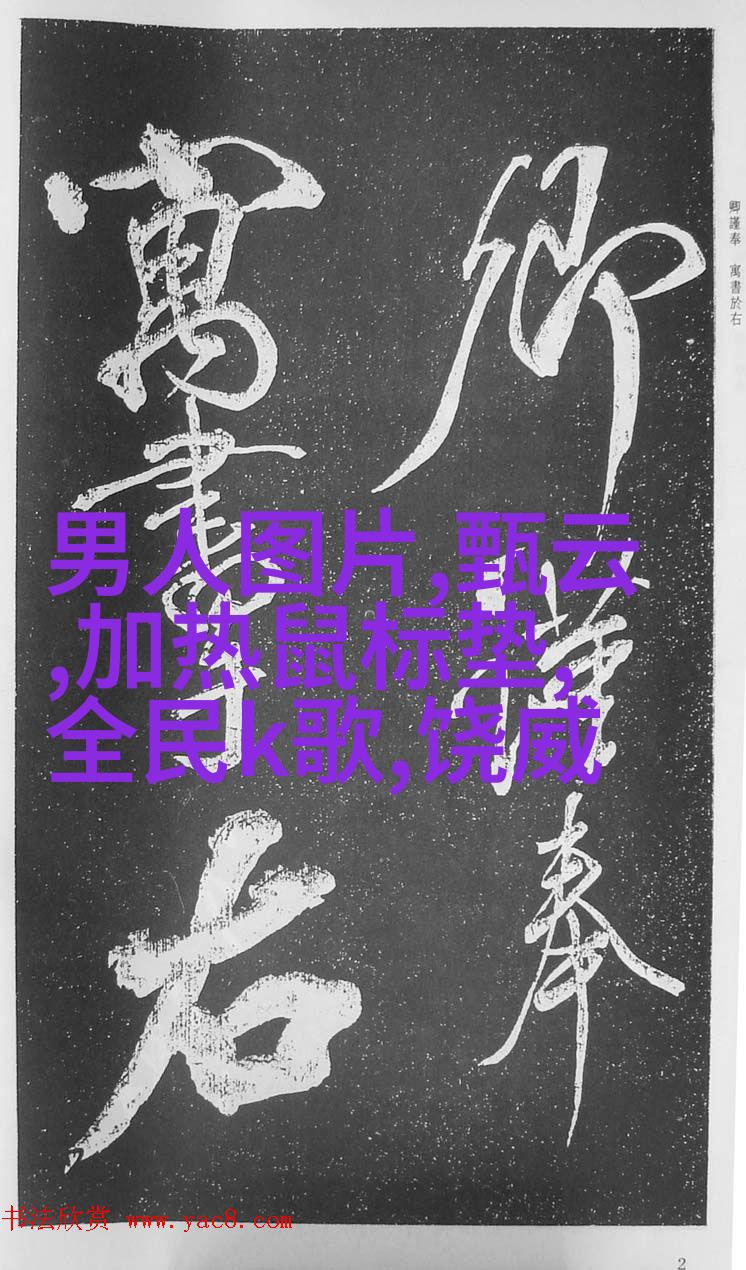 卿謹奉
寓書於右
卿謹奉 寓書於右
男人图片,甄云
,加热鼠标垫,
全民k歌,饶威
书法欣赏 www.yac8.com
2